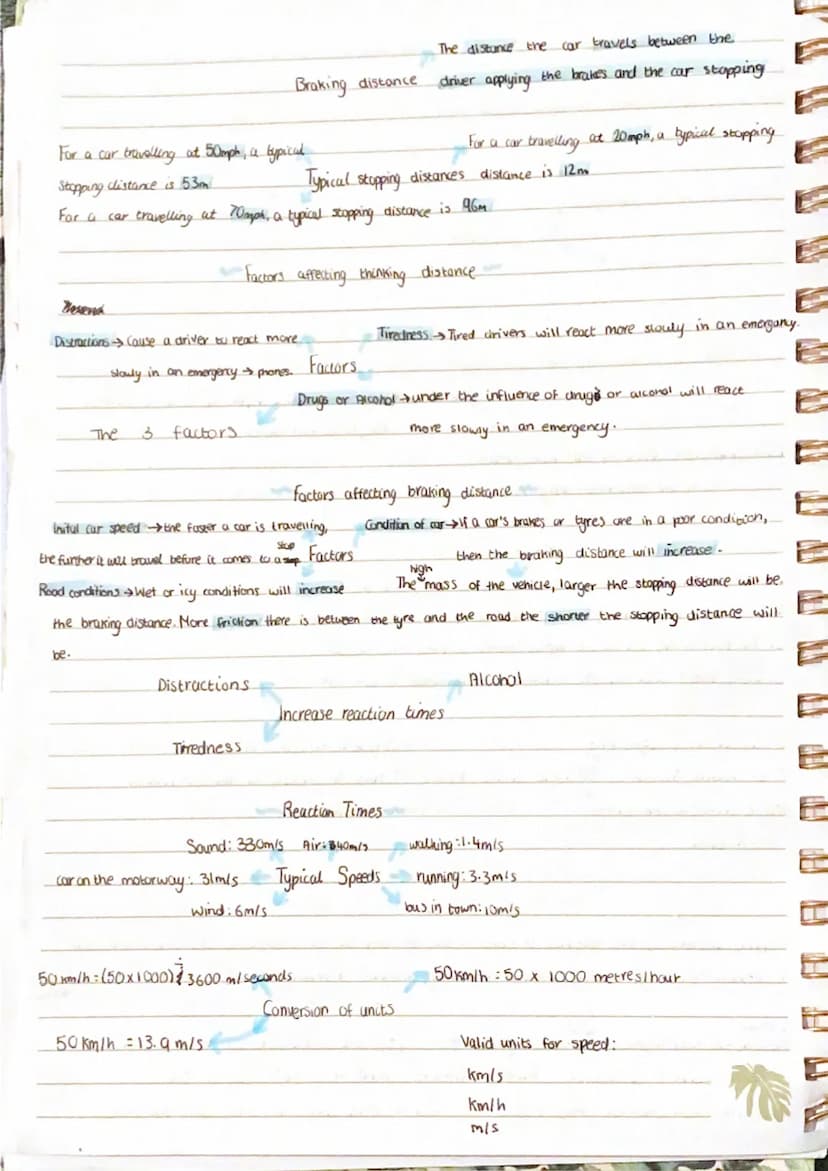 The distance the car travels between the
Braking distance driver applying the brakes and the car stopping
For a car travelling at 50mph, a typical
For a car travelling at 20mph, a typical stopping
stopping distance is 53m
Typical stopping distances distance is 12m
For a car travelling at 70mph, a typical stopping distance is 96m
Factors affecting thinking distance
Distractions → Cause a driver to react more
Tiredness → Tired drivers will react more slowly in an emergancy.
slowly in an emergency → phones. Factors
Drugs or Alcohol → under the influence of drugs or alcohol will reace
The 3 factors
more slowly in an emergency.
Factors affecting braking distance
Initial car speed → the faster a car is travelling,
Condition of car → If a car's brakes or tyres are in a poor condition,
the further it will travel before it comes to a stop Factors
then the braking distance will increase.
Road conditions → Wet or icy conditions will increase
The high mass of the vehicle, larger the stopping distance will be.
the braking distance. More friction there is between the tyre and the road the shorter the stopping distance will
be.
Distractions
Alcohol
Increase reaction times
Tiredness
Reaction Times
Sound: 330m/s Air: 340m/s walking: 1.4m/s
car on the motorway: 31m/s Typical Speeds running: 3.3m/s
Wind: 6m/s bus in town: 10m/s
50 km/h = (50 x 1000) ÷ 3600 m/seconds
50km/h = 50 x 1000 metres/hour
Conversion of units
50 km/h = 13.9 m/s
Valid units for speed:
km/s
km/h
m/s